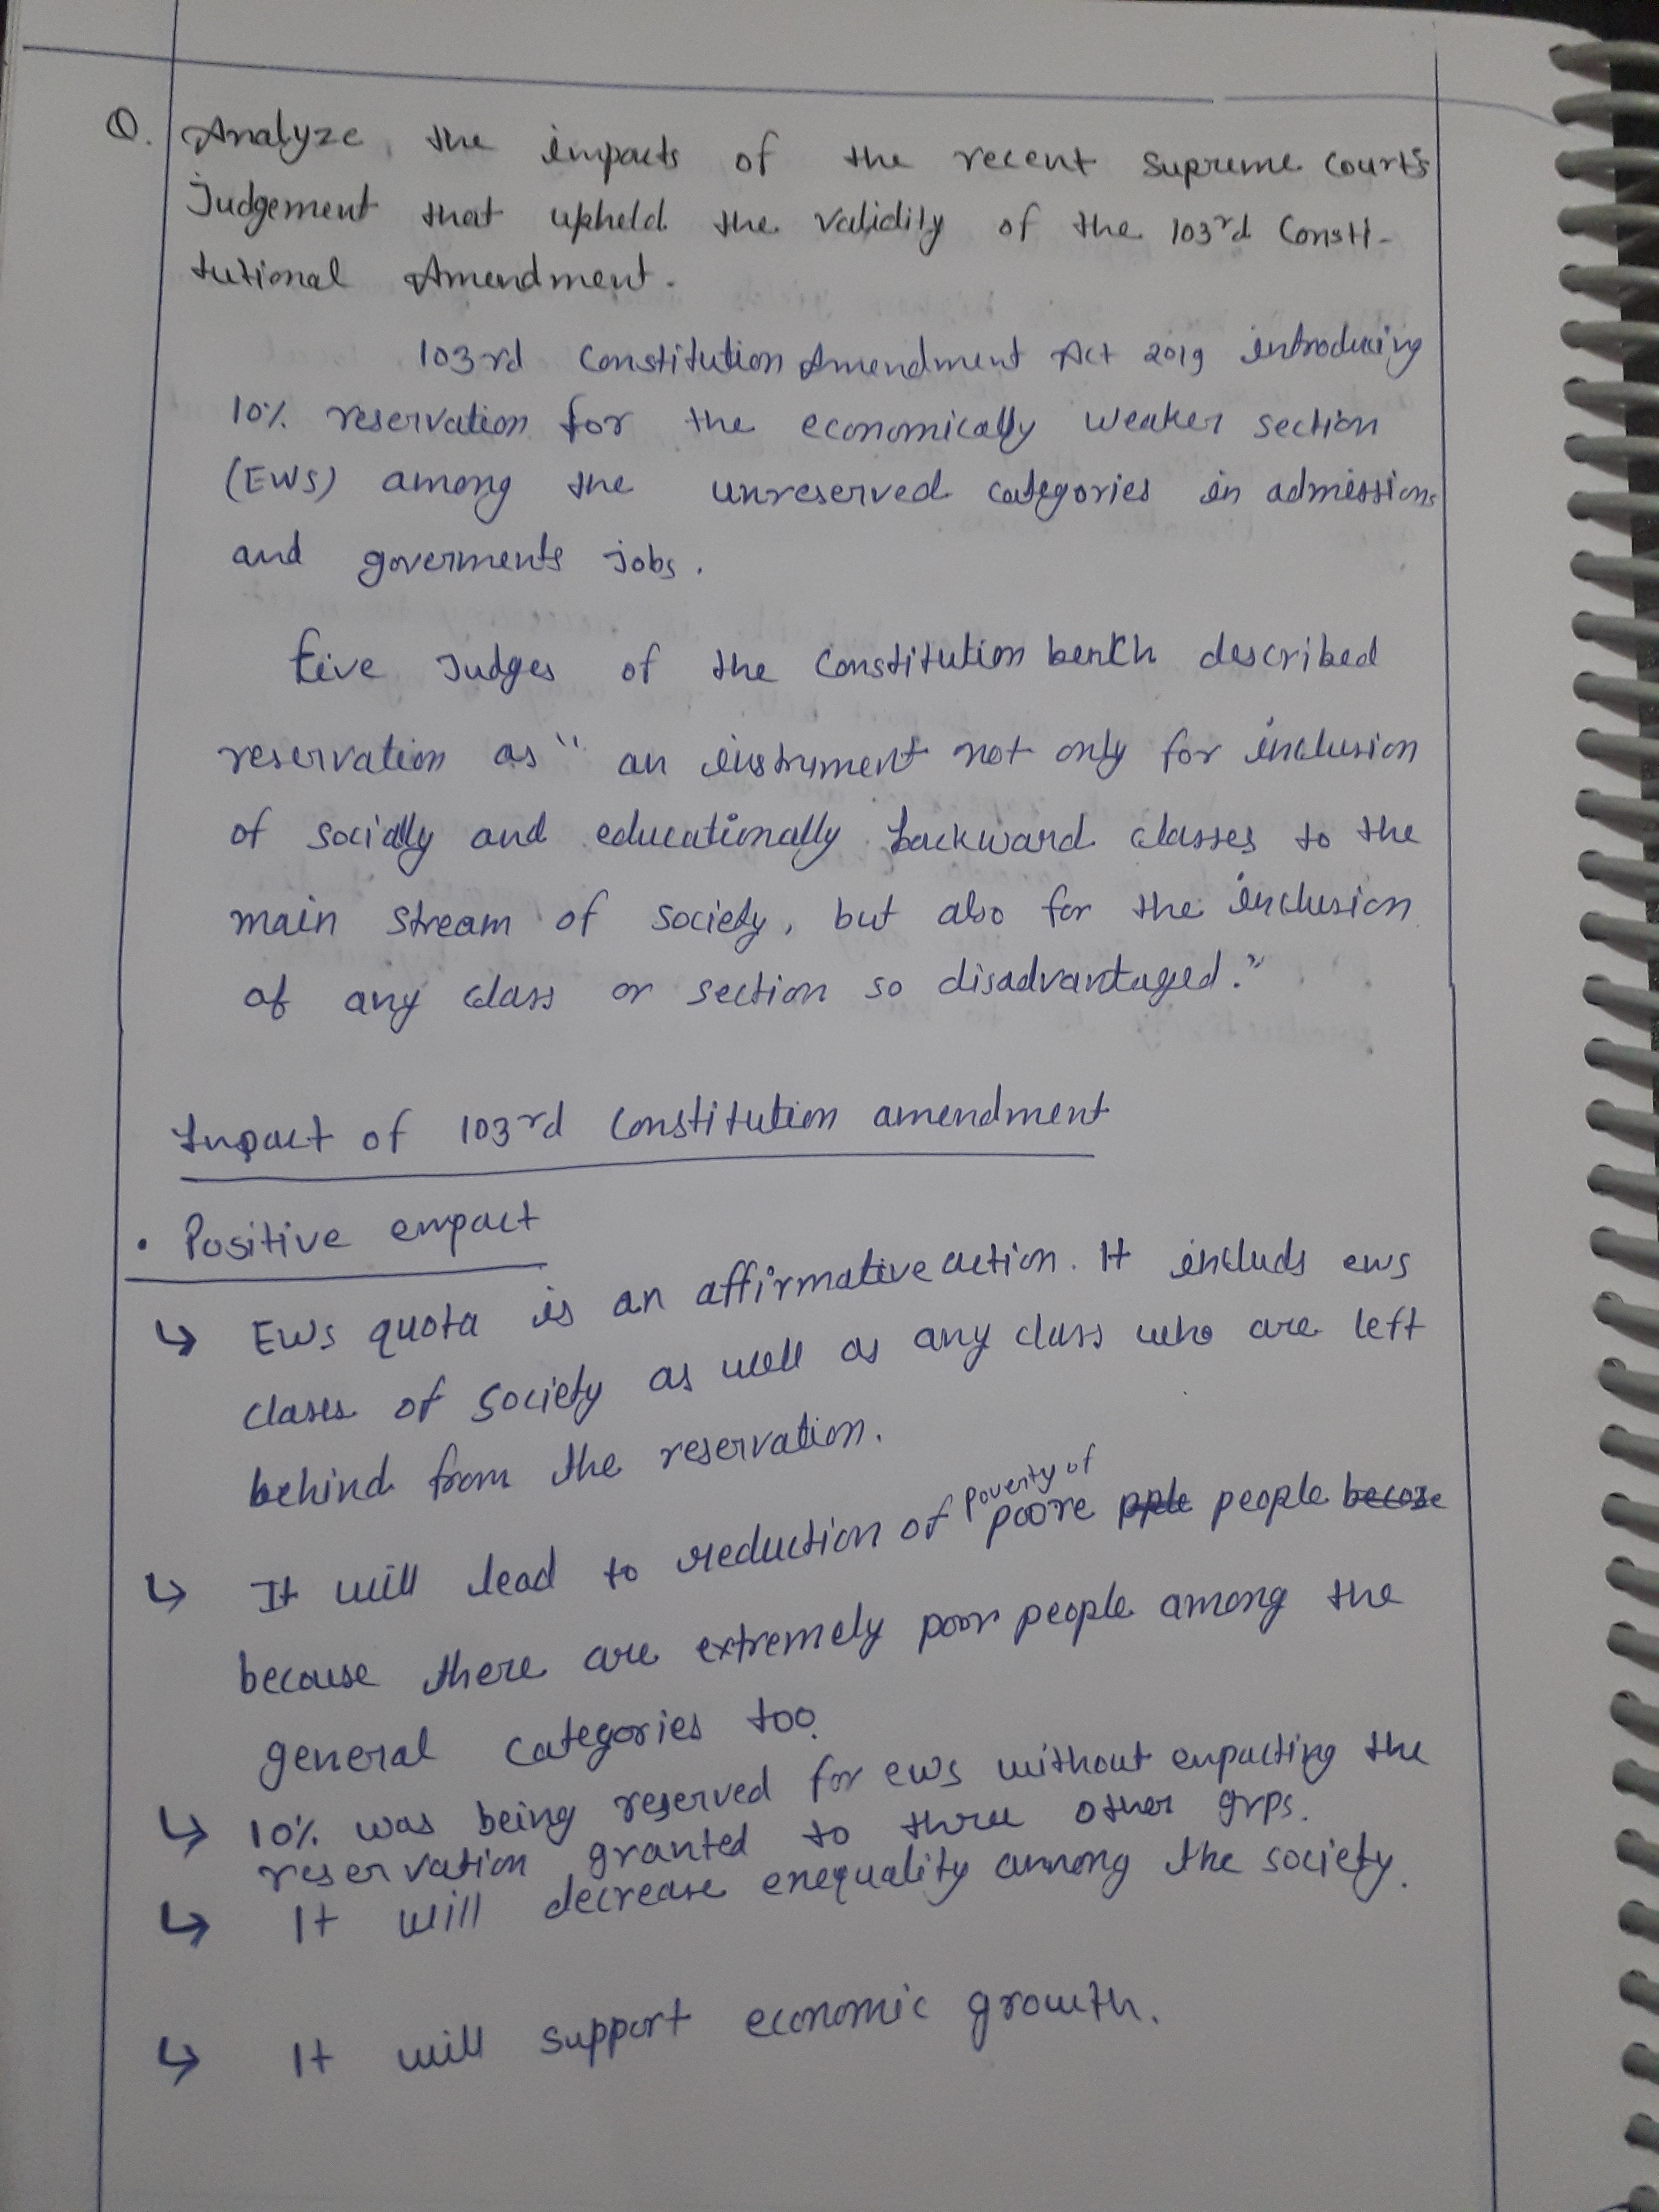 Q. Analyze the impacts of the recent Supreme Court's
Judgement that upheld the validity of the 103rd Consti-
tutional Amendment.
103rd Constitution Amendment Act 2019 introducing
10% reservation for the economically weaker section
(EWS) among the unreserved categories in admissions
and goverments jobs.
five Judges of the constitution bench described
reservation as "an instrument not only for inclusion
of socially and educationally backward classes to the
main stream of society, but also for the inclusion
of any class or section so disadvantaged."
Impact of 103rd Constitution amendment
• Positive empact
↳ EWS quota is an affirmative action. It includs ews
clases of society as well as any class who are left
behind from the reservation.
↳ It will lead to reduction of poverty of poore pple people becose
because there are extremely poor people among the
general categories too.
↳ 10% was being reserved for ews without enpacting the
reservation granted to three other grps.
↳ It will decrease enequality among the society.
↳ It will support economic growth.